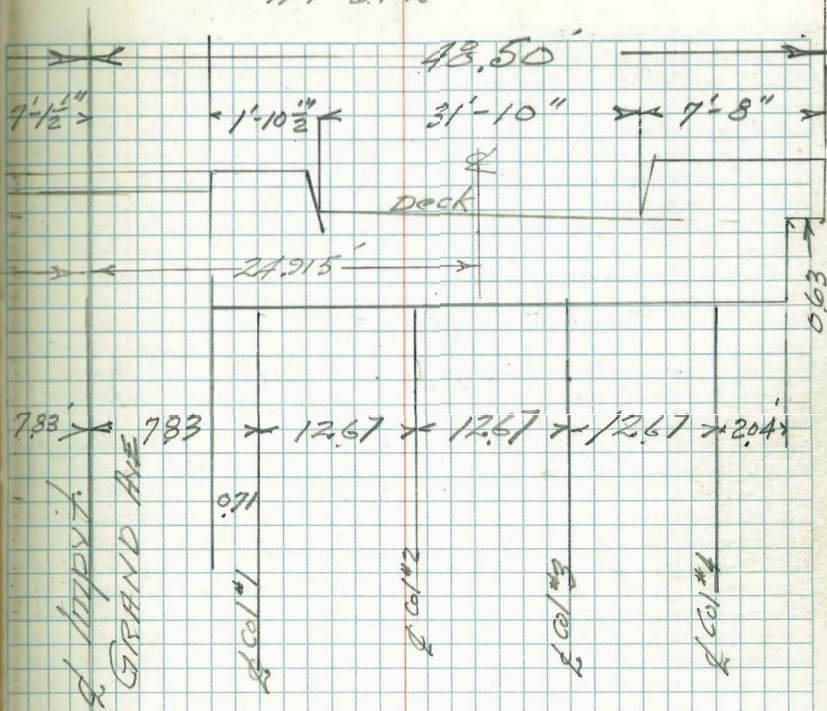 48.50'
7'-1½" 1'-10½" 31'-10" 7'-8"
℄
Deck
24.915'
0.63
7.83' 7.83 12.67 12.67 12.67 2.04'
0.71
℄ Impvt.
GRAND AVE
℄ Col #1
℄ Col #2
℄ Col #3
℄ Col #4